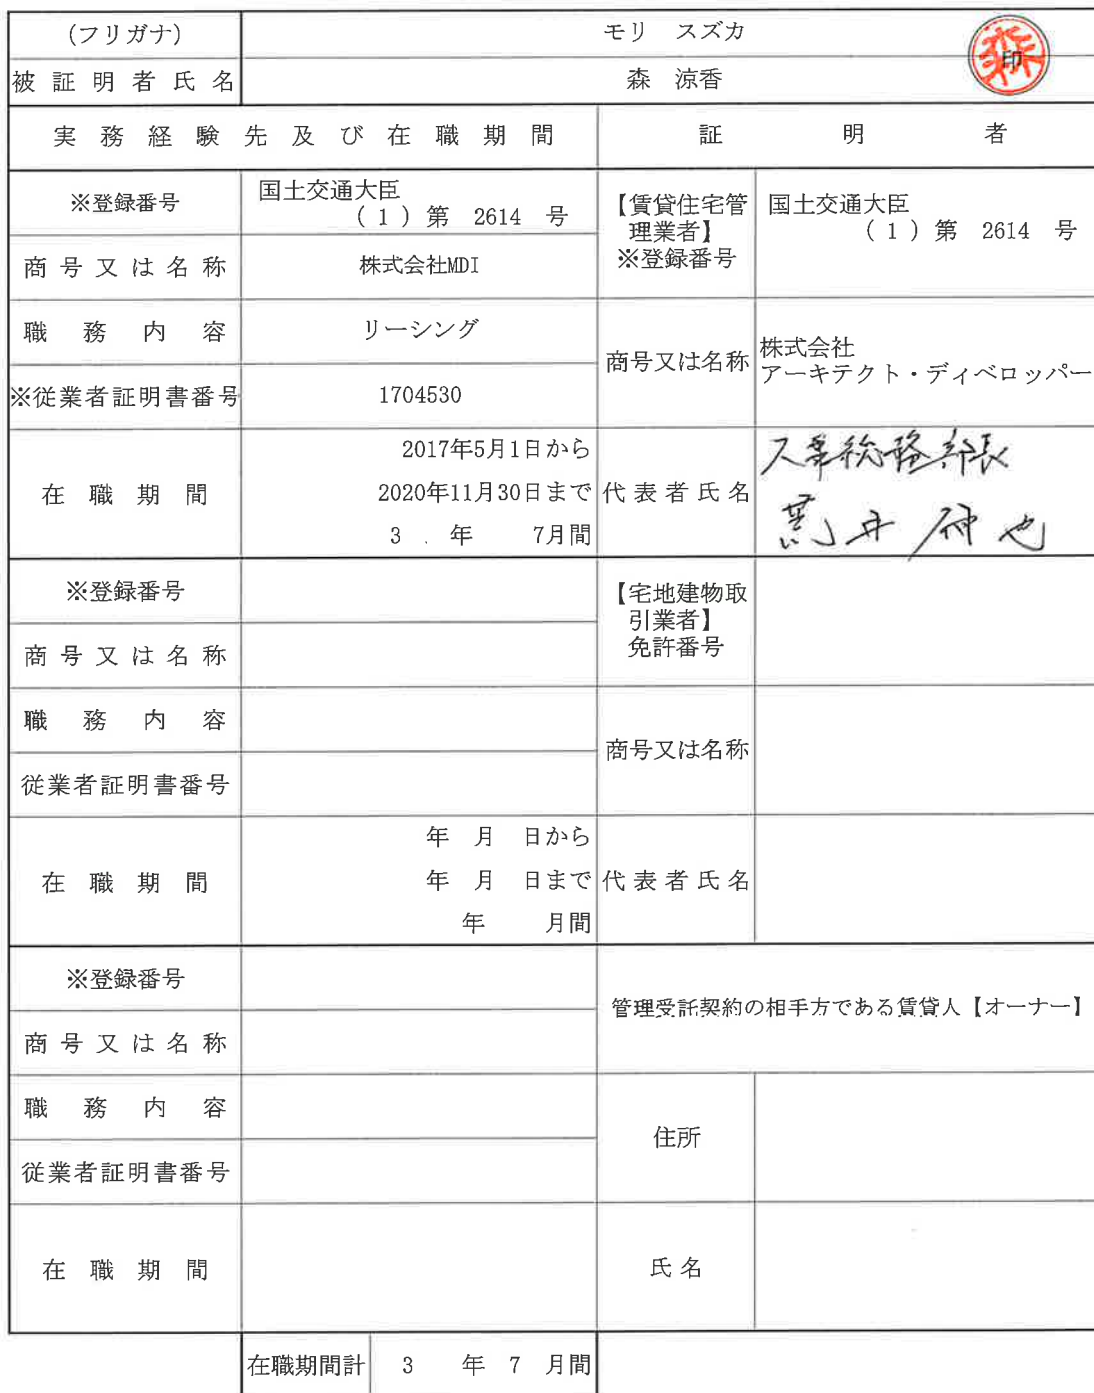 (フリガナ)
モリ　スズカ
被証明者氏名
森　涼香
印
実務経験先及び在職期間
証明者
※登録番号
国土交通大臣
(1)第　2614　号
【賃貸住宅管
理業者】
※登録番号
国土交通大臣
(1)第　2614　号
商号又は名称
株式会社MDI
職務内容
リーシング
商号又は名称
株式会社
アーキテクト・ディベロッパー
※従業者証明書番号
1704530
在職期間
2017年5月1日から
2020年11月30日まで
3　.　年　7月間
代表者氏名
総務部長
井　也
※登録番号
【宅地建物取
引業者】
免許番号
商号又は名称
職務内容
商号又は名称
従業者証明書番号
在職期間
年　月　日から
年　月　日まで
年　月間
代表者氏名
※登録番号
管理受託契約の相手方である賃貸人【オーナー】
商号又は名称
職務内容
住所
従業者証明書番号
在職期間
氏名
在職期間計　3　年　7　月間